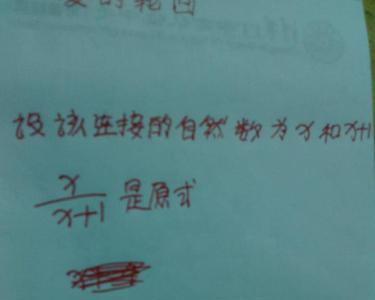 变的轮回
设该连接的自然数为x和x+1
x/x+1 是原式